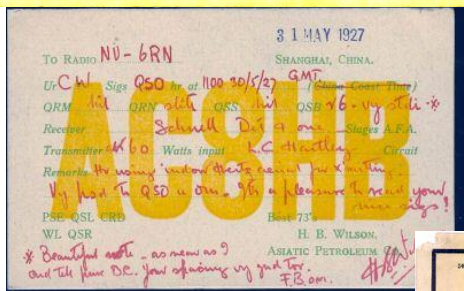 31 MAY 1927
To RADIO NU-6RN SHANGHAI, CHINA.
Ur CW Sigs QSO hr. at 1100 30/5/27 GMT. (China Coast Time)
QRM nil QRN slite QSS nil QSB x6 - vy stdi -*
Receiver Schnell Det & one Stages A.F.A.
Transmitter 60 Watts input L.C. Hartley Circuit
Remarks Hr using indoor Hertz aerial for xmitting.
Vy glad to QSO u om. It's a pleasure to read your
nice sigs!
AC8HB
PSE QSL CRD Best 73's
WL QSR H. B. WILSON.
* Beautiful note - as near as I ASIATIC PETROLEUM Co
can tell pure D.C. Your spacing vy gud too.
F.B. om.